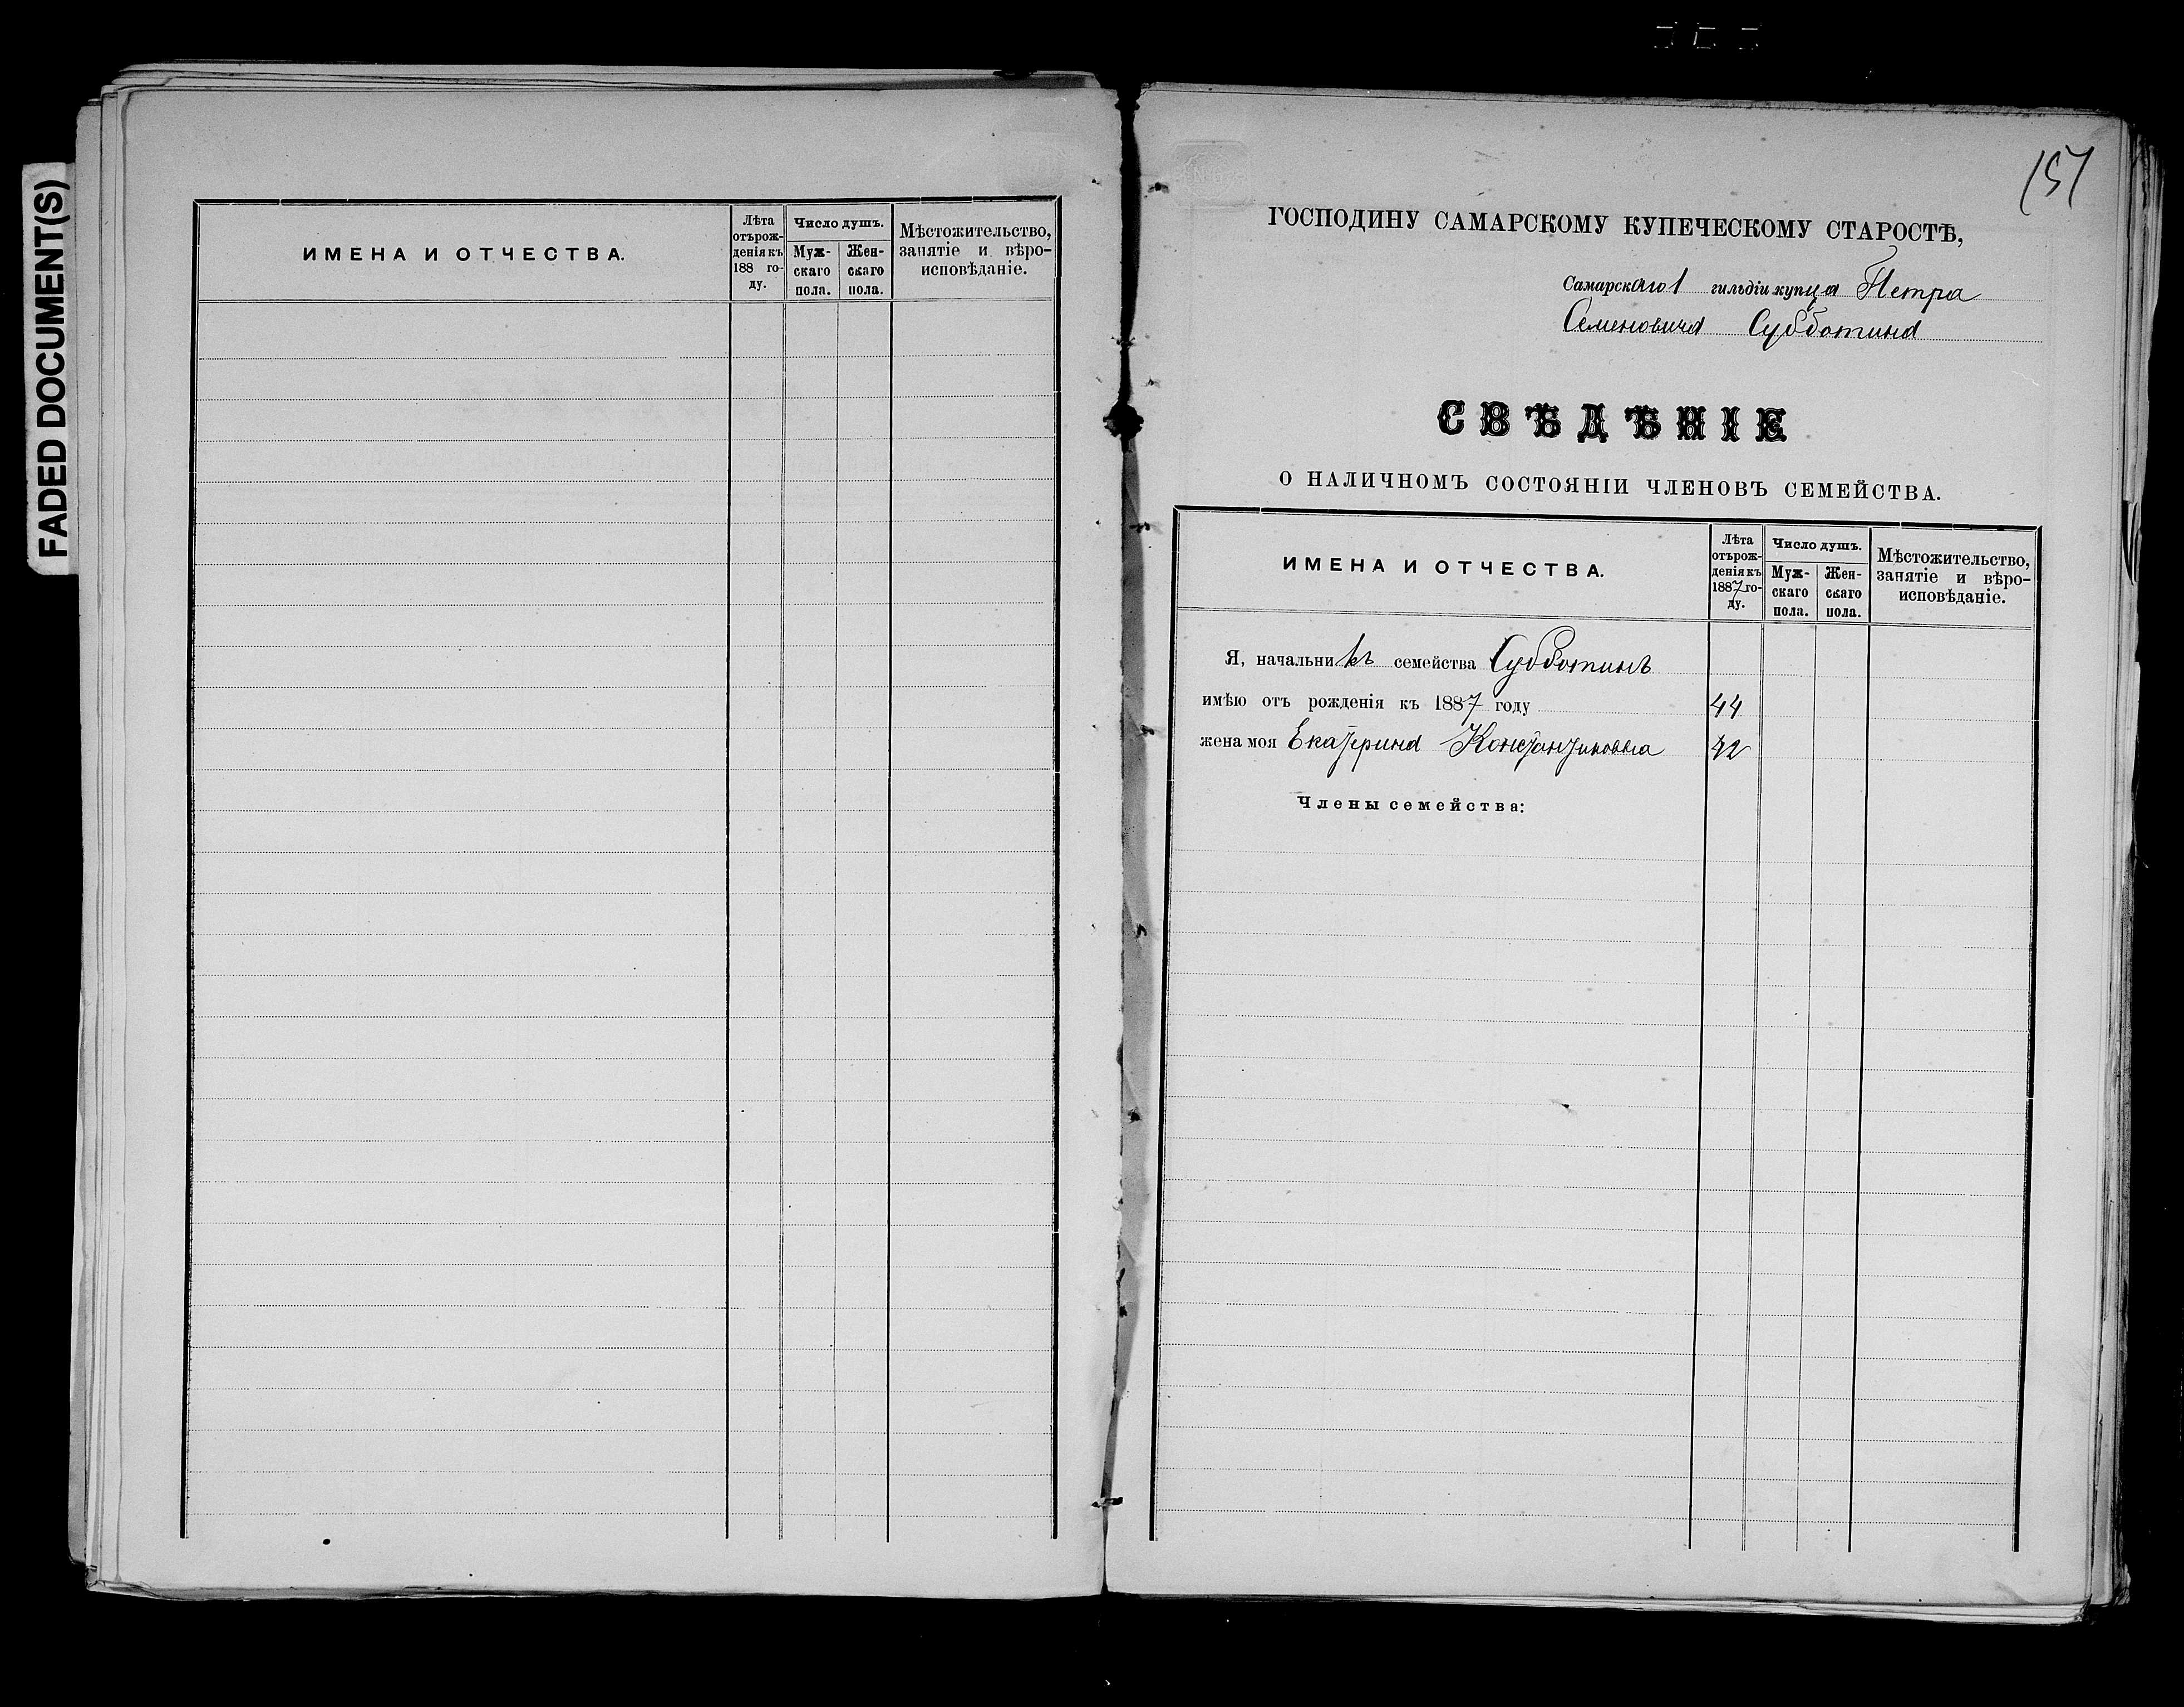 FADED DOCUMENT(S)
ИМЕНА И ОТЧЕСТВА.
Лѣта
отъ рож-
денія къ
188 го-
ду.
Число душъ.
Муж-
скаго
пола.
Жен-
скаго
пола.
Мѣстожительство,
занятіе и вѣро-
исповѣданіе.
151
ГОСПОДИНУ САМАРСКОМУ КУПЕЧЕСКОМУ СТАРОСТѢ,
Самарскаго 1 гильдіи купца Петра
Семеновича Субботина
СВѢДѢНІЕ
О НАЛИЧНОМЪ СОСТОЯНІИ ЧЛЕНОВЪ СЕМЕЙСТВА.
ИМЕНА И ОТЧЕСТВА.
Лѣта
отъ рож-
денія къ
1887 го-
ду.
Число душъ.
Муж-
скаго
пола.
Жен-
скаго
пола.
Мѣстожительство,
занятіе и вѣро-
исповѣданіе.
Я, начальникъ семейства Субботинъ
имѣю отъ рожденія къ 1887 году 44
жена моя Екатерина Константиновна 42
Члены семейства: